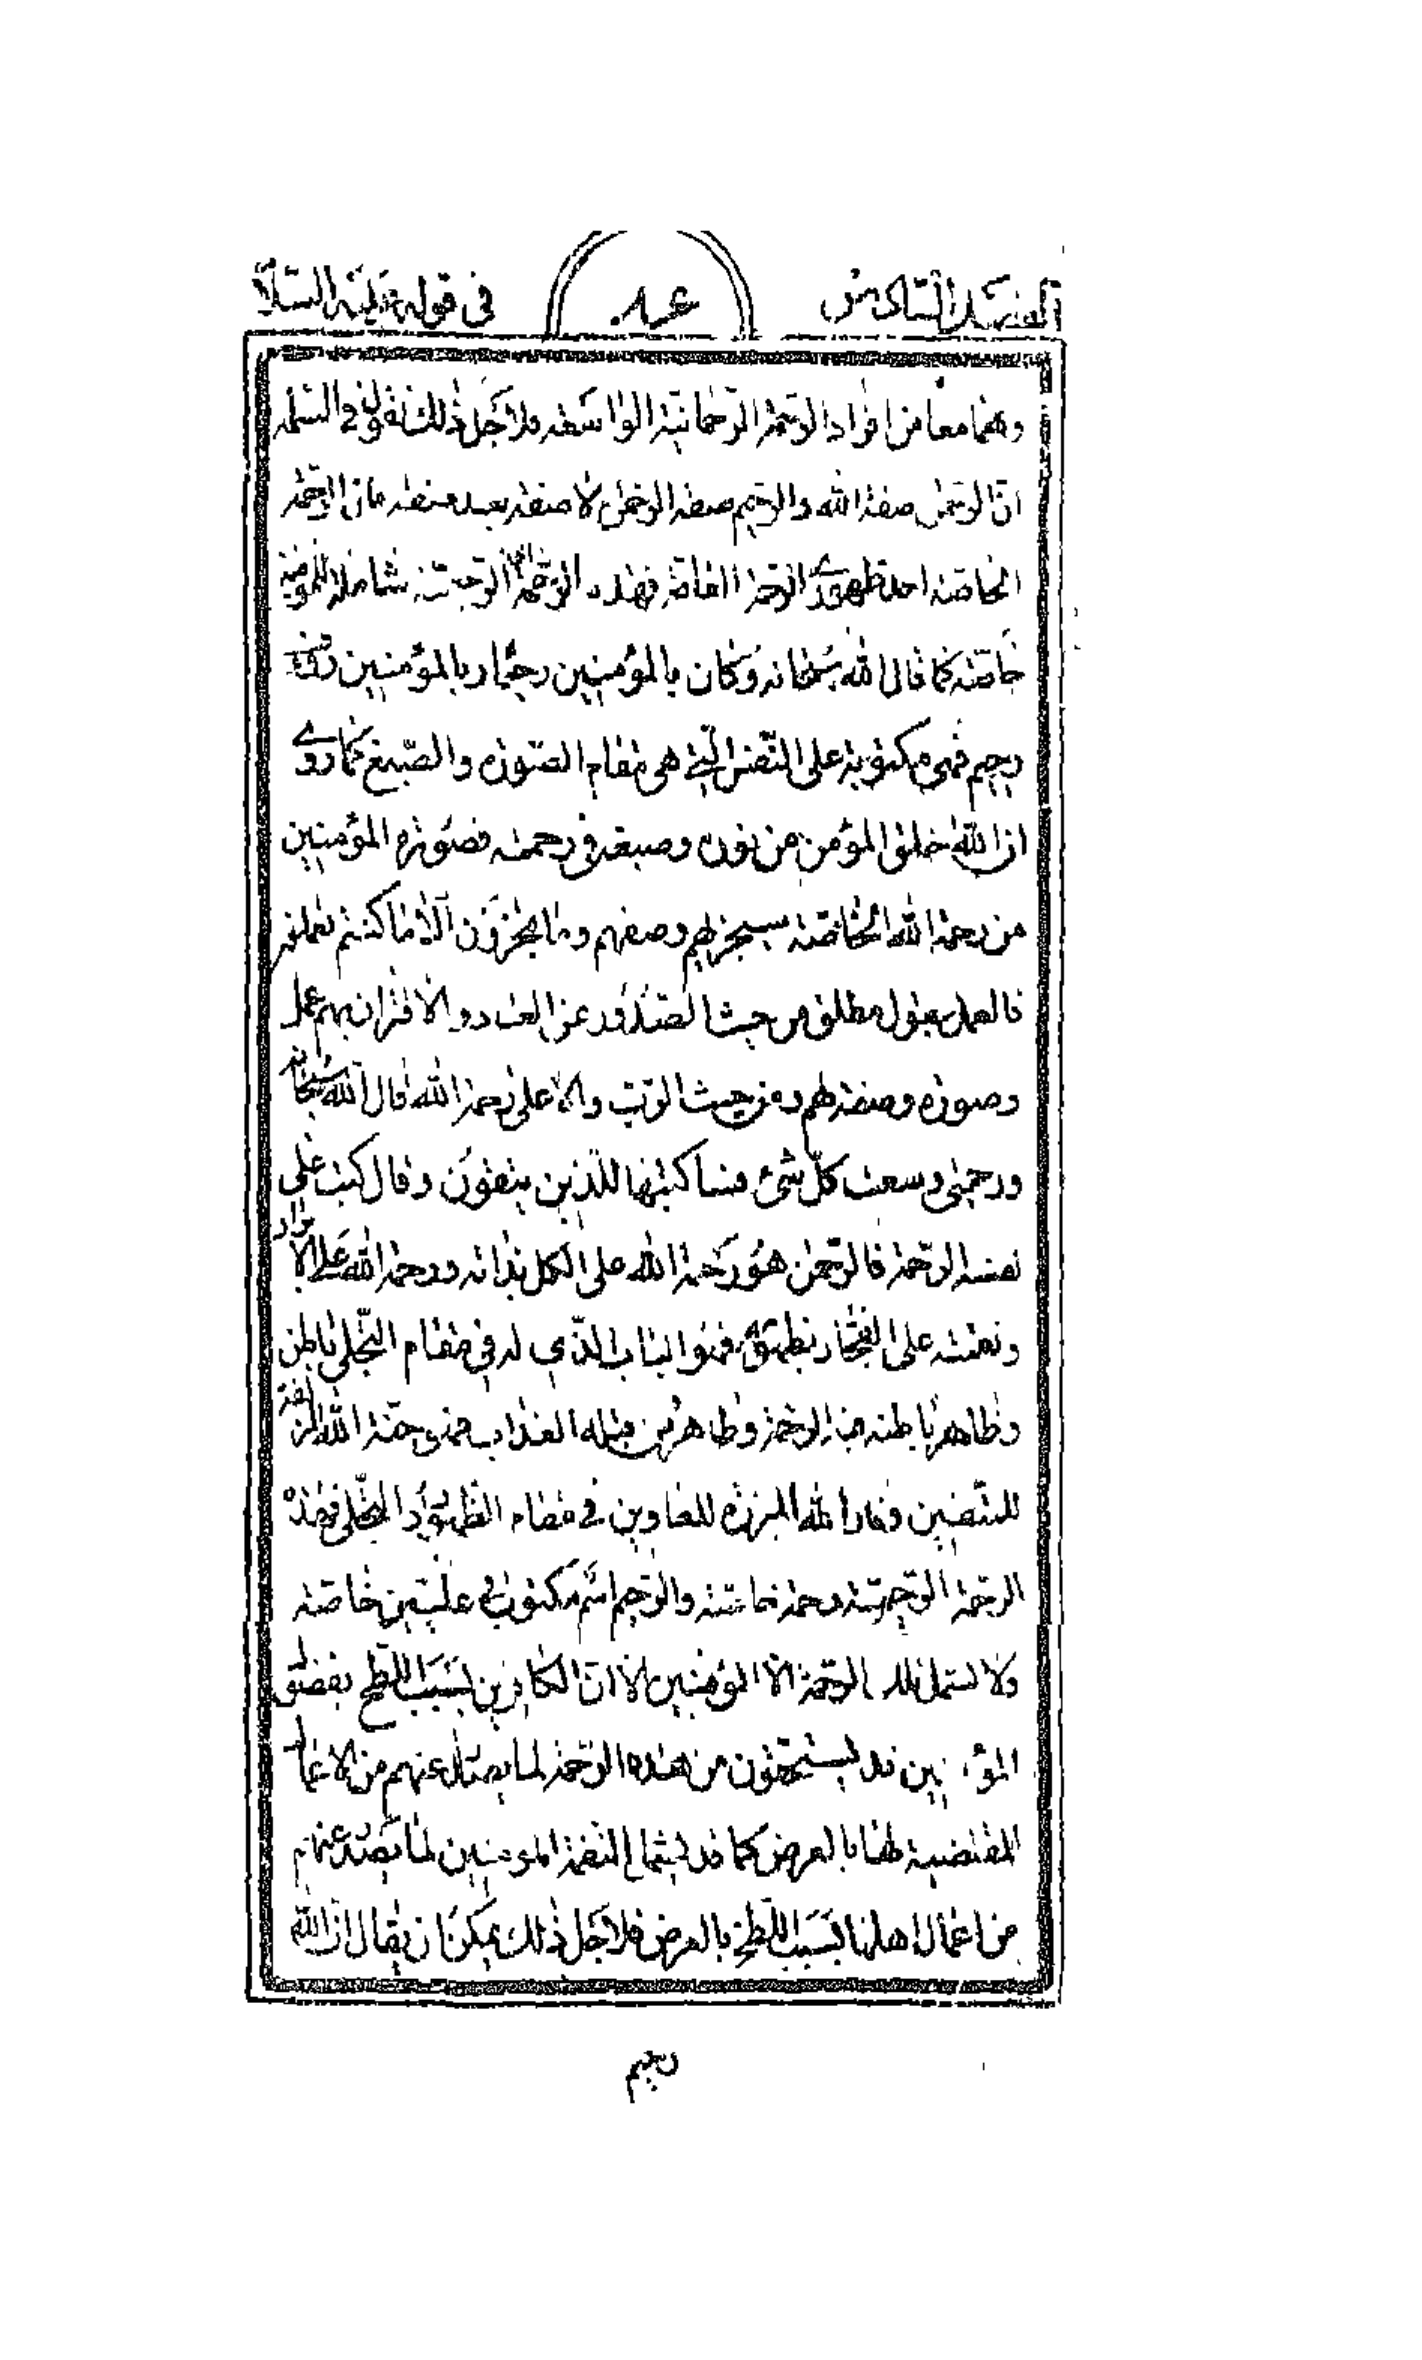 السادس
في قوله عليه السلام
وهما معا من افراد الرحمة الرحمانية الواسعة فلاجل ذلك نقول في البسملة
ان الرحمن صفة الله والرحيم صفة الرحمن لا صفة بعد صفة فان الرحمة
الخاصة احد ظهوري الرحمة العامة فهذه الرحمة الرحيمية شاملة للمؤمنين
خاصة كما قال الله سبحانه وكان بالمؤمنين رحيما وبالمؤمنين رؤف
رحيم فهي مكتوبة على النفس التي هي مقام الصورة والصبغ كما روي
ان الله خلق المؤمن من نوره وصبغه في رحمته فصورة المؤمنين
من رحمة الله الخاصة سيجزيهم وصفهم وما تجزون الا ما كنتم تعملون
فالعمل بقول مطلق من حيث الصدور عن العبد والاقتران بهم عمل
وصورة وصفة لهم ومن حيث الرتبة والاعلى رحمة الله قال الله سبحانه
ورحمتي وسعت كل شيء فساكتبها للذين يتقون وقال كتب على
نفسه الرحمة فالرحمن هو رحمة الله على الكل بذاته ورحمة الله على الابرار
ونقمته على الفجار بظهوره فهو الباب الذي له في مقام التجلي باطن
وظاهر باطنه فيه الرحمة وظاهره من قبله العذاب فمنه جنة الله المزلفة
للمتقين ونار الله المبرزة للغاوين في مقام الظهور والتجلي فهذه
الرحمة الرحيمية رحمة خاصة والرحيم اسم مكتوب في عليين خاصة
ولا تشمل تلك الرحمة الا المؤمنين الا ان الكافرين بسبب اللطخ بفضل
المؤمنين قد يستحقون من هذه الرحمة لما يصدر عنهم من الاعمال
المقتضية لها بالعرض كما قد يشمل النقمة المؤمنين لما يصدر عنهم
من اعمال اهلها بسبب اللطخ بالعرض فلاجل ذلك يمكن ان يقال ان الله
رحيم